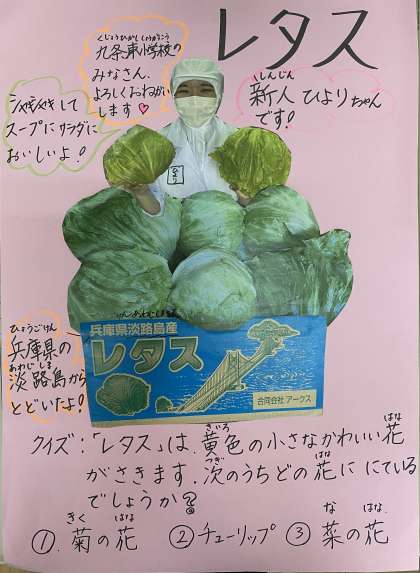 レタス
九条東小学校の
くじょうひがししょうがっこう
みなさん、
よろしくおねがい
します♡
新人ひよりちゃん
しんじん
です!
シャキシャキして
スープにサラダに
おいしいよ!
ひより
兵庫県淡路島産
レタス
合同会社アークス
兵庫県の
ひょうごけん
淡路島から
あわじしま
とどいたよ!
クイズ:「レタス」は、黄色の小さなかわいい花
きいろ
はな
がさきます。次のうちどの花ににている
つぎ
はな
でしょうか?
①.菊の花 ②チューリップ ③菜の花
きく はな
な はな